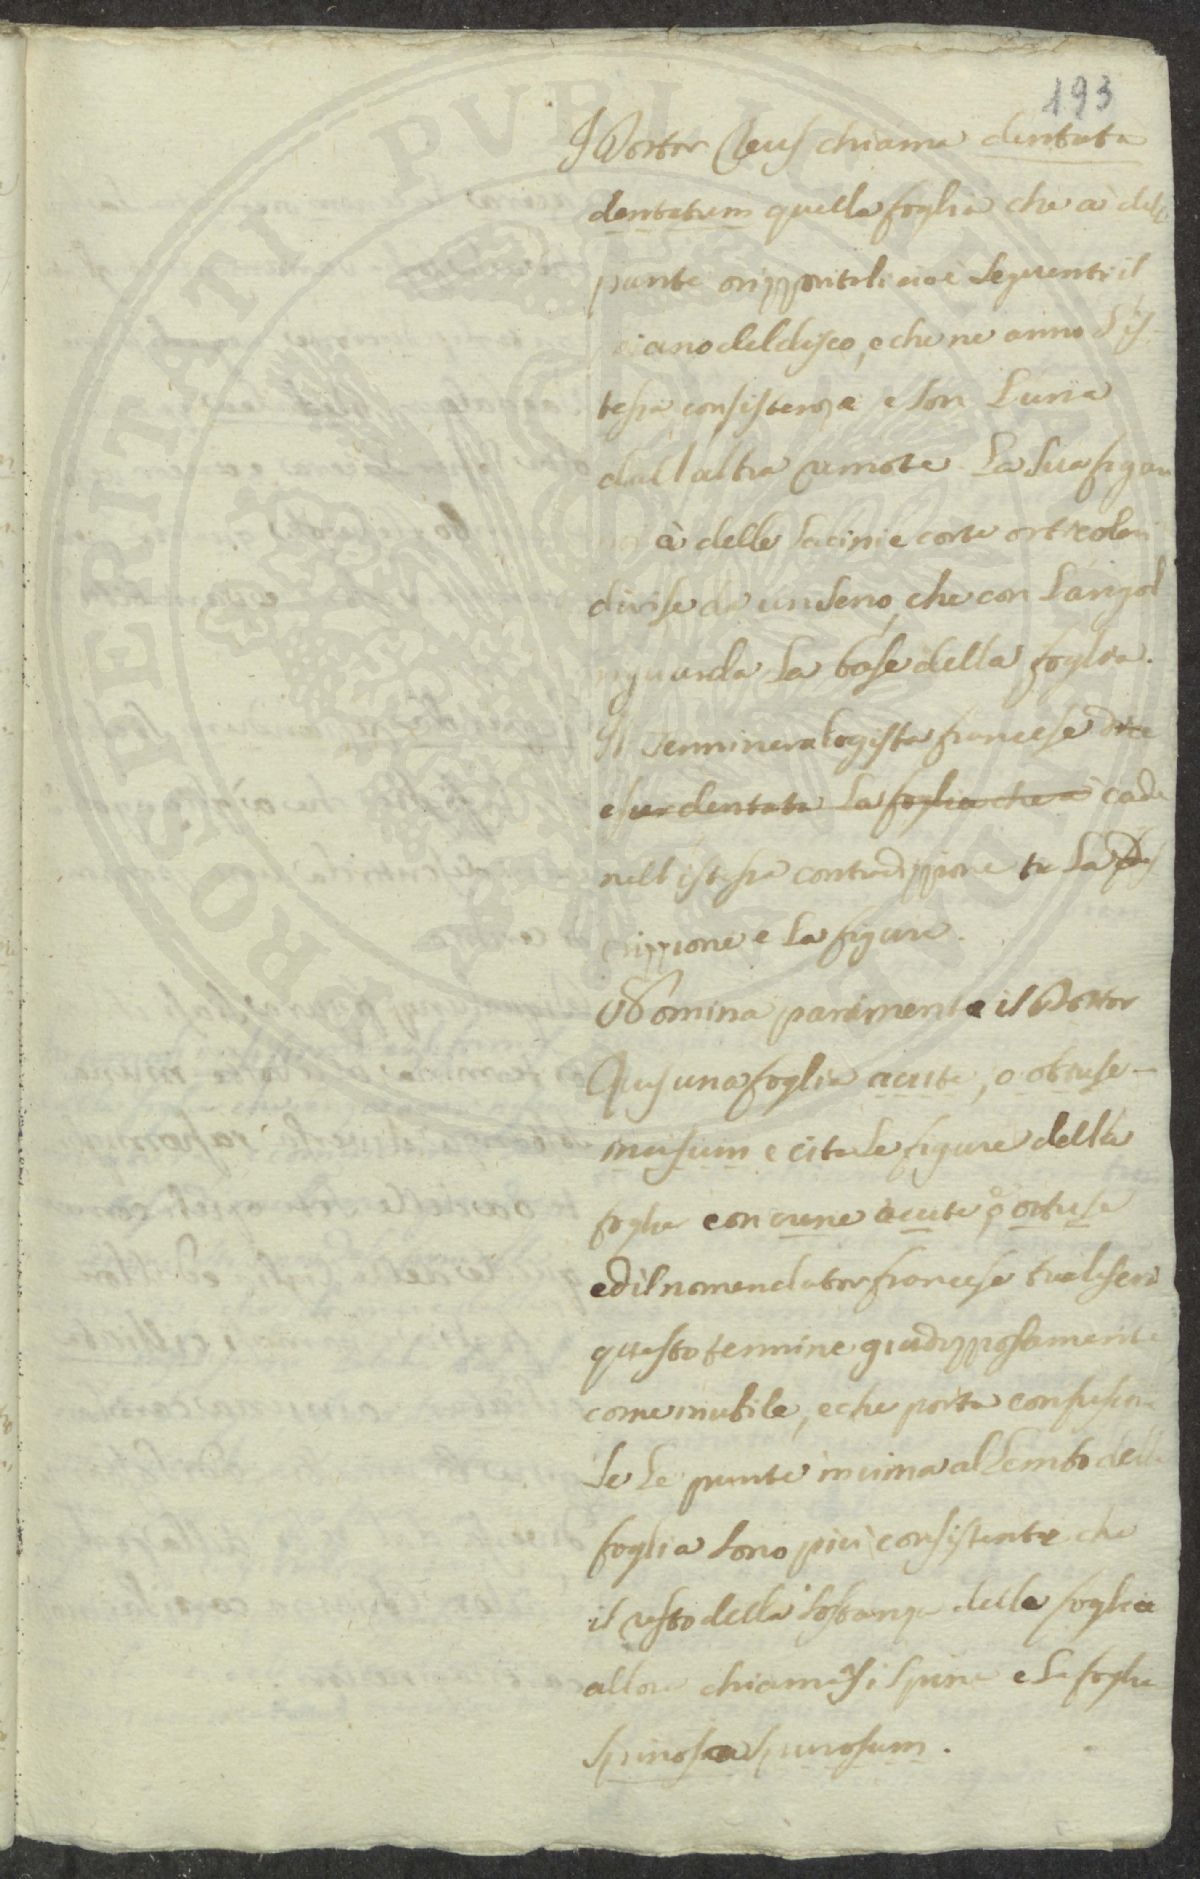 193
Il Dottor Reus chiama dentata
dentatum quella foglia che à delle
punte orizzontali cioè seguenti il
piano del disco, e che ne anno l'is-
tessa consistenza e son l'una
dall'altra rimote. La sua figura
à delle lacinie corte orizolan
divise da un seno, che con l'angol
riguarda la base della foglia.
Il mineralogista francese dice
esser dentata la foglia che à cade
nell'istessa contradizzione tr la Des
crizzione e la figura.
Nomina parimente il Dottor
Reus una foglia acute, o obtuse-
incisum e cita le figure della
foglia con crene acute e obtuse
ed il nomenclator francese tralascerà
questo termine giudizziosamente
come inutile, e che porta confusione
Se le punte in cima al lembo della
foglia sono più consistenti che
il resto della sostanza della foglia
allora chiamasi spine e la foglia
spinosa spinosum.
PROSPERITATI PVBLICAE